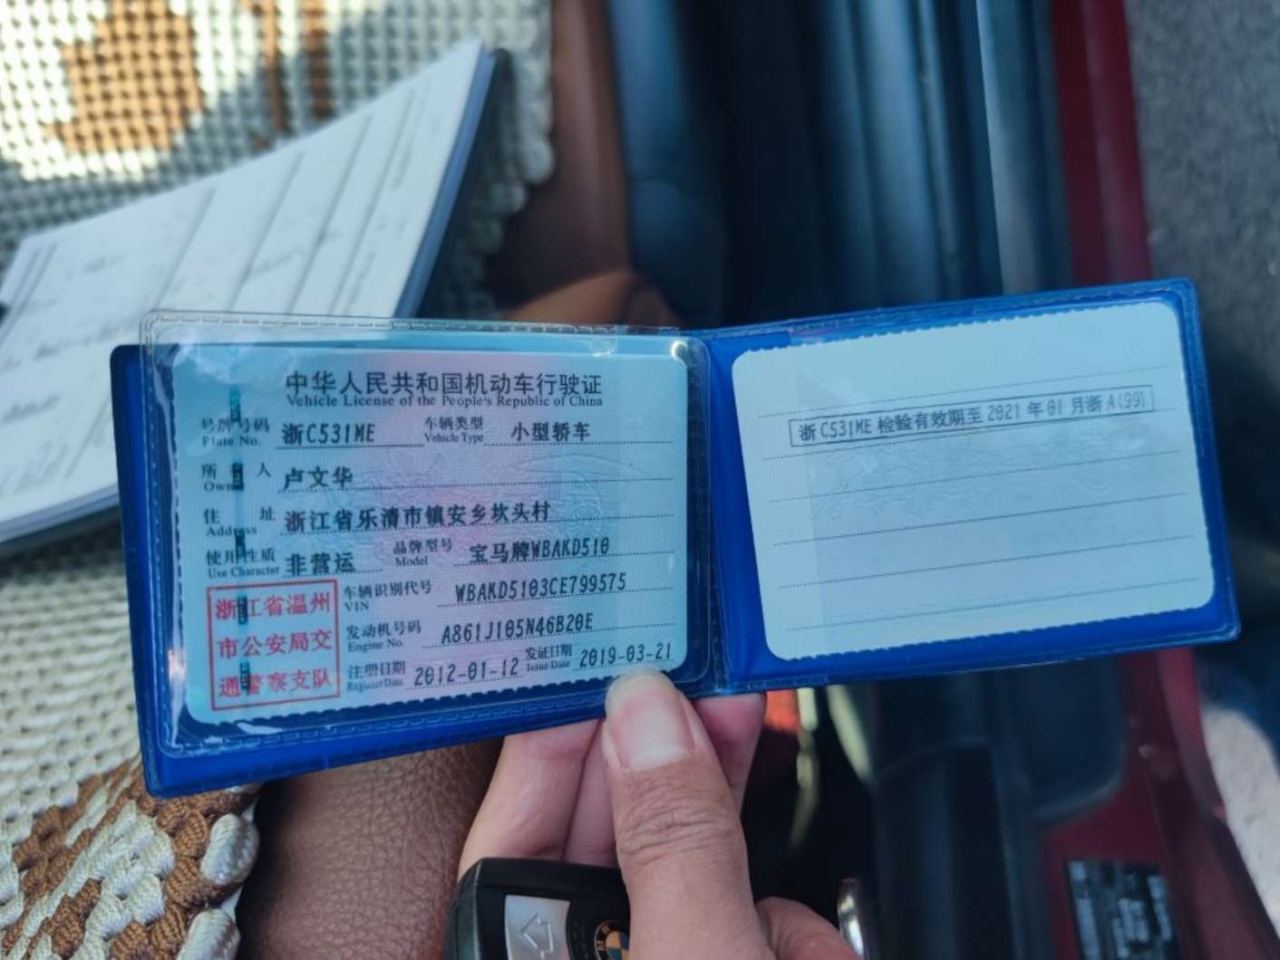 中华人民共和国机动车行驶证
Vehicle License of the People's Republic of China
号牌号码 浙C531ME 车辆类型 小型轿车
Plate No. Vehicle Type
所有人 卢文华
Owner
住址 浙江省乐清市镇安乡坎头村
Address
使用性质 非营运 品牌型号 宝马牌WBAKD510
Use Character Model
车辆识别代号 WBAKD5103CE799575
VIN
发动机号码 A861J105N46B20E
Engine No.
注册日期 2012-01-12 发证日期 2019-03-21
Register Date Issue Date
浙江省温州
市公安局交
通警察支队
浙C531ME 检验有效期至 2021 年 01 月浙 A(99)